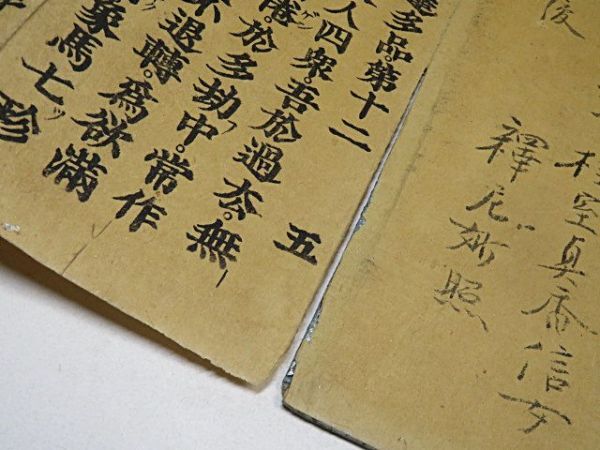 後
室貞香信女
釋尼妙照
多品。第十二 五
人四衆。吾於過去。無
於多劫中。常作
不退轉。爲欲滿
象馬七珍